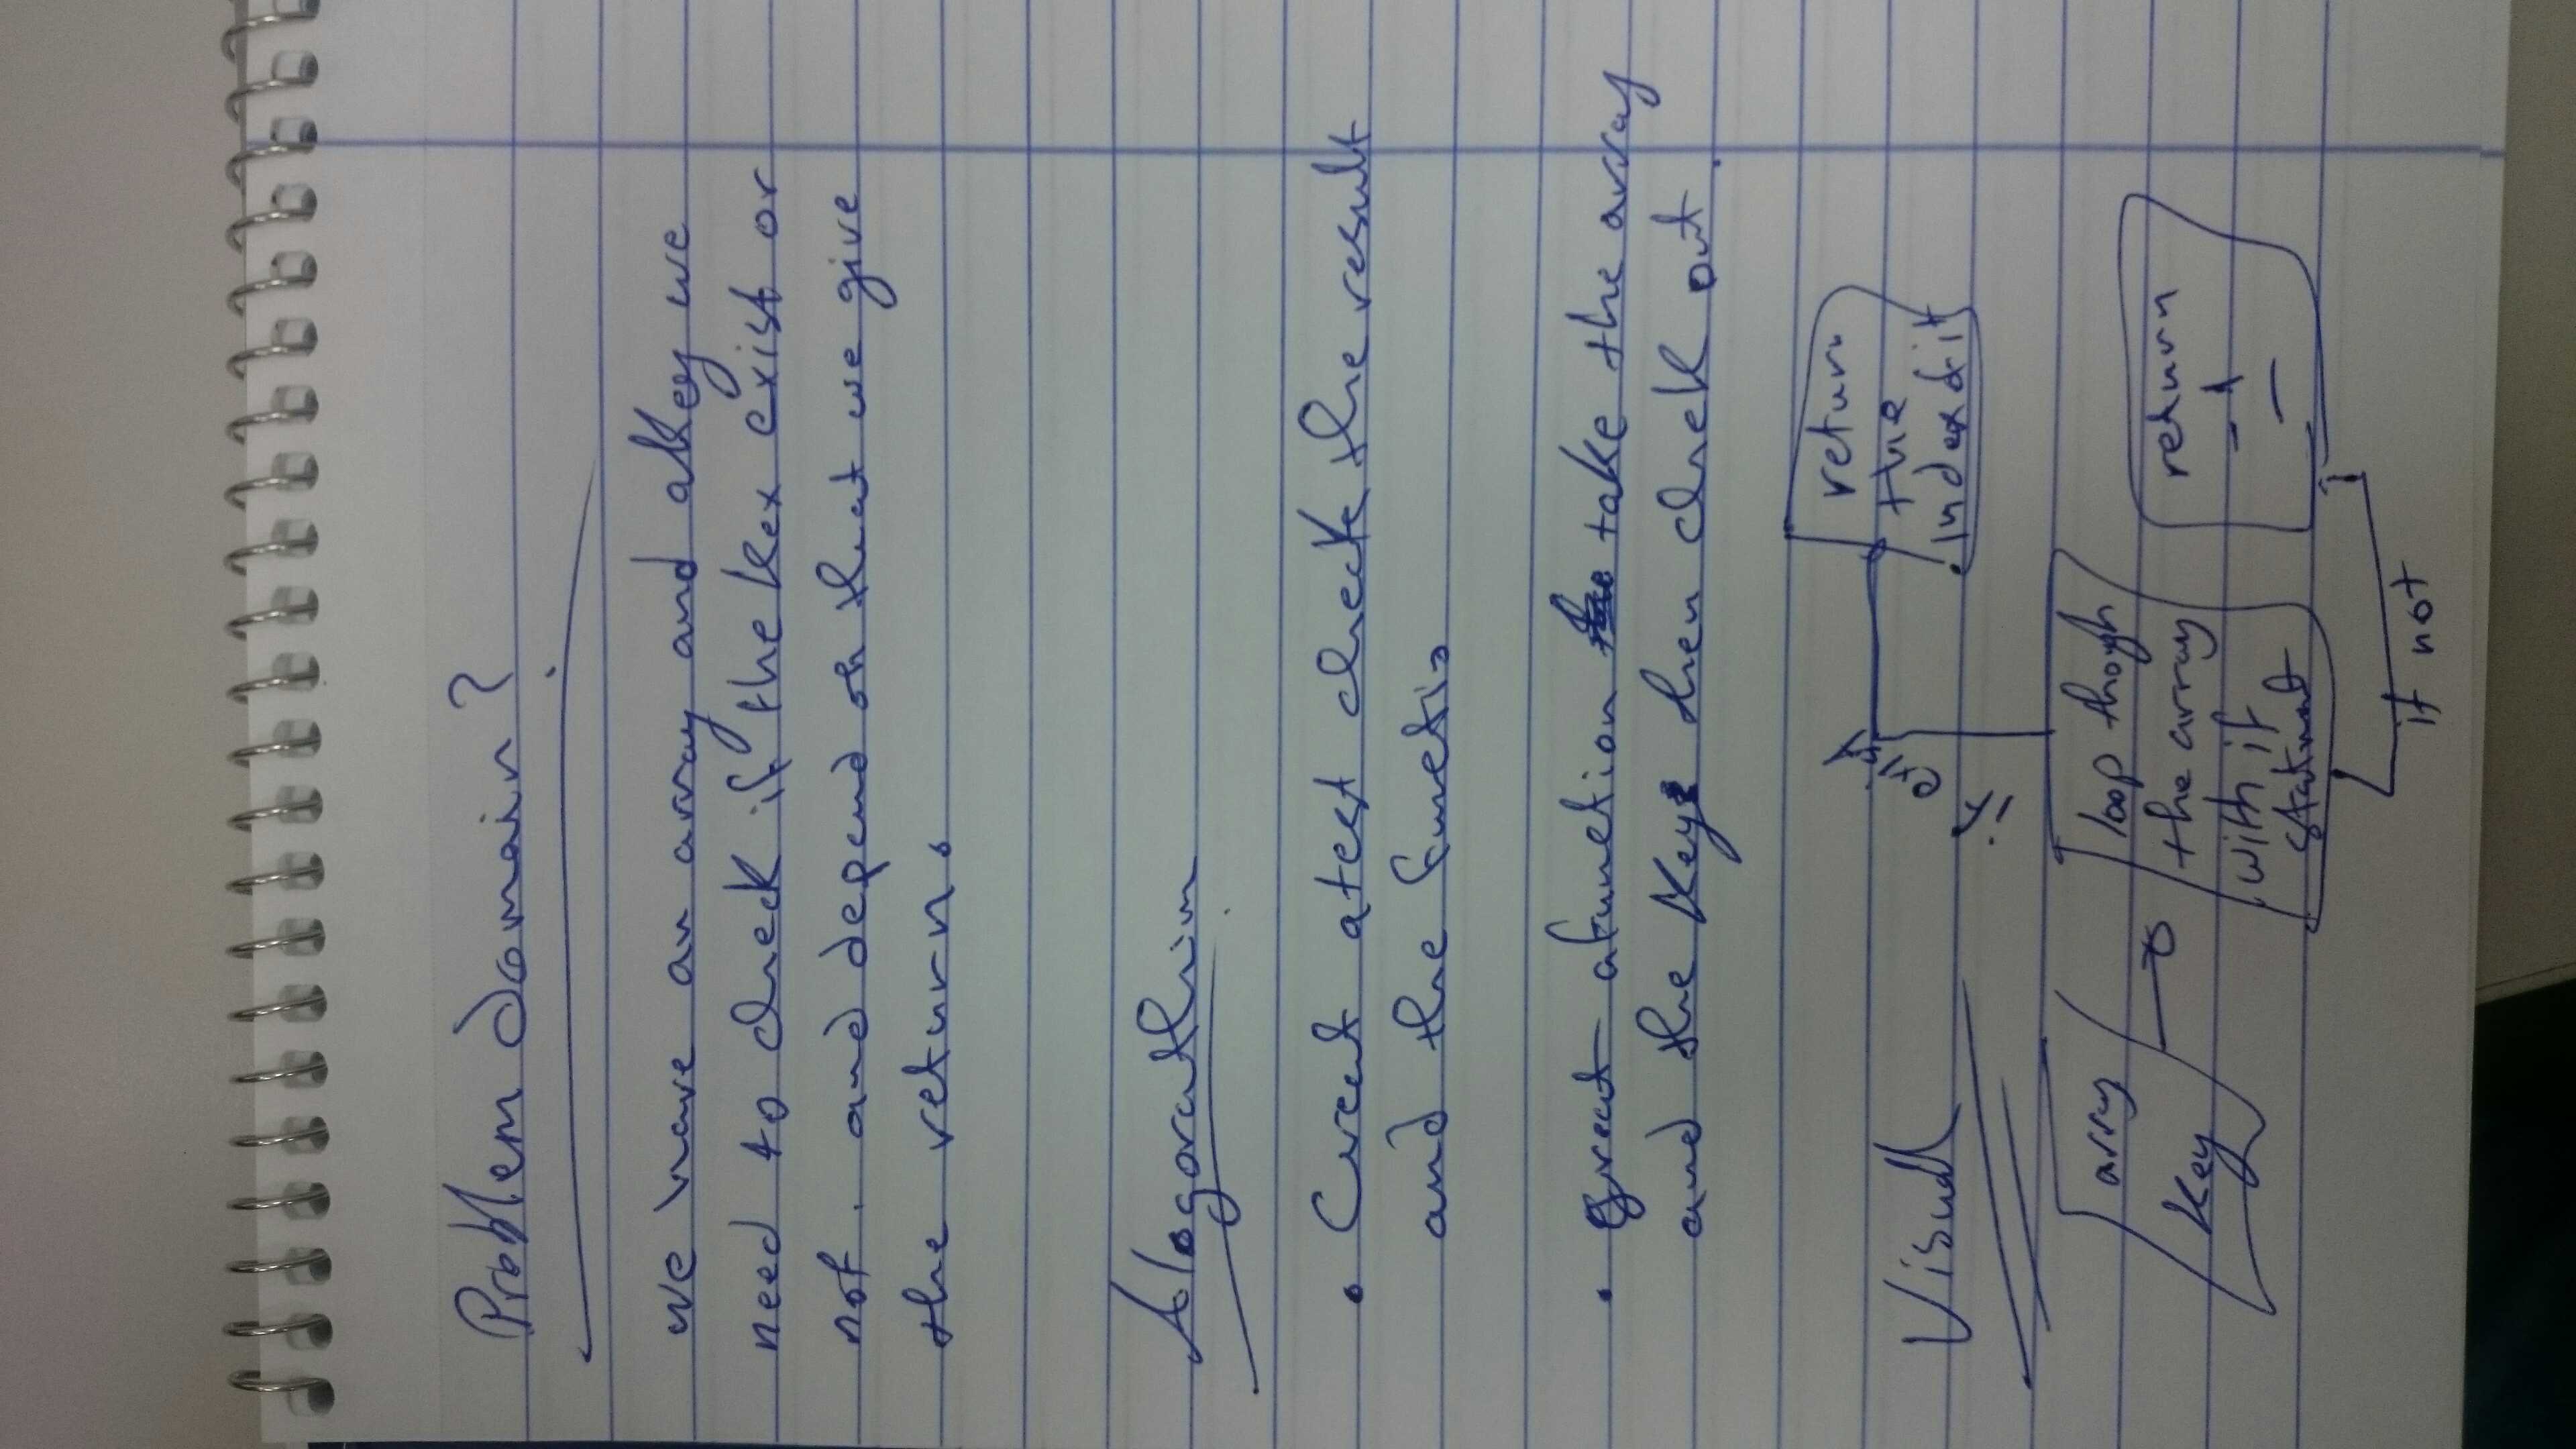 Problem domain?
we have an array and akey we
need to check if the kex exist or
not. and depend on that we give
the return.
Alogorathim
• Creat atest check the result
and the functio
• greact afunction take the array
and the key then check out.
Visual
array
key
loop though
the array
with if
statment
if
return
the
index &it
if not
return
-1